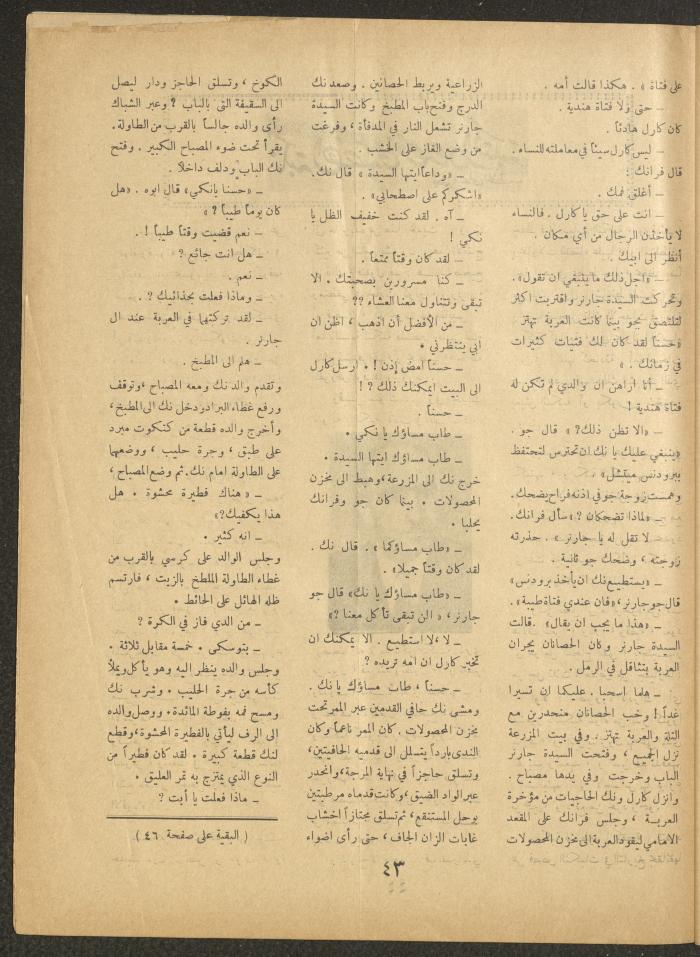 على فتاة » . هكذا قالت أمه .
ـ حتى ولا فتاة هندية .
كان كارل هادئاً .
ـ ليس كارل سيئاً في معاملته للنساء .
قال فرانك :
ـ أغلق فمك .
ـ انت على حق يا كارل . فالنساء
لا يأخذن الرجال من أي مكان .
أنظر الى ابيك .
ـ «اجل ذلك ما ينبغي ان تقول» .
وتحركت السيدة جارنر واقتربت اكثر
لتلتصق بجو بينما كانت العربة تهتز
«حسناً لقد كان لك فتيات كثيرات
في زمانك . »
ـ أنا اراهن ان والدي لم تكن له
فتاة هندية !
ـ «الا تظن ذلك?» قال جو .
«ينبغي عليك يا نك ان تحترس لتحتفظ
ببرودنس ميتشل»
وهمست زوجة جو في اذنه فراح يضحك.
ـ «لماذا تضحكان ?» سأل فرانك.
ـ لا تقل له يا جارنر» . حذرته
زوجته ، وضحك جو ثانية .
ـ «يستطيع نك ان يأخذ برودنس»
قال جو جارنر ، «فان عندي فتاة طيبة» .
ـ «هذا ما يجب ان يقال» . قالت
السيدة جارنر وكان الحصانان يجران
العربة بتثاقل في الرمل .
ـ هلما اسحبا . عليكما ان تسيرا
غداً ! وخب الحصانان منحدرين مع
التلة والعربة تهتز . وفي بيت المزرعة
نزل الجميع ، وفتحت السيدة جارنر
الباب وخرجت وفي يدها مصباح .
وانزل كارل ونك الحاجيات من مؤخرة
العربــة ، وجلس فرانك على المقعد
الامامي ليقود العربة الى مخزن المحصولات
الزراعية ويربط الحصانين . وصعد نك
الدرج وفتح باب المطبخ وكانت السيدة
جارنر تشعل النار في المدفأة ، وفرغت
من وضع الغاز على الخشب .
ـ «وداعاً ايتها السيدة » قال نك.
«اشكركم على اصطحابي» .
ـ آه . لقد كنت خفيف الظل يا
نكي !
ـ لقد كان وقتاً ممتعاً .
ـ كنا مسرورين بصحبتك . الا
تبقى وتتناول معنا العشاء ??
ـ من الأفضل أن اذهب ، اظن ان
ابي ينتظرني .
ـ حسناً امض إذن ! . ارسل كارل
الى البيت ايمكنك ذلك ? !
ـ حسناً .
ـ طاب مساؤك يا نكي .
ـ طاب مساؤك ايتها السيدة .
خرج نك الى المزرعة ، وهبط الى مخزن
المحصولات . بينما كان جو وفرانك
يحلبا .
ـ «طاب مساؤكما» . قال نك .
لقد كان وقتاً جميلا» .
ـ «طاب مساؤك يا نك» قال جو
جارنر ، « الن تبقى تأكل معنا ?»
ـ لا ، لا استطيع . الا يمكنك ان
تخبر كارل ان امه تريده ?
ـ حسناً ، طاب مساؤك يا نك .
ومشى نك حافي القدمين عبر الممر تحت
مخزن المحصولات . كان الممر ناعماً وكان
الندى بارداً يتسلل الى قدميه الحافيتين،
وتسلق حاجزاً في نهاية المرجة ، وانحدر
عبر الواد الضيق ، وكانت قدماه مرطبتين
بوحل المستنقع ، ثم تسلق مجتازاً اخشاب
غابات الزان الجاف ، حتى رأى اضواء
الكوخ ، وتسلق الحاجز ودار ليصل
الى السقيفة التي بالباب ? وعبر الشباك
رأى والده جالساً بالقرب من الطاولة.
يقرأ تحت ضوء المصباح الكبير . وفتح
نك الباب ودلف داخلا .
ـ «حسنا يانكي» قال ابوه . «هل
كان يوماً طيباً ?»
ـ نعم قضيت وقتاً طيباً ! .
ـ هل انت جائع ?
ـ نعم .
ـ وماذا فعلت بحذائيك ? .
ـ لقد تركتهما في العربة عند ال
جارنر .
ـ هلم الى المطبخ .
وتقدم والد نك ومعه المصباح ، وتوقف
ورفع غطاء البراد ودخل نك الى المطبخ ،
وأخرج والده قطعة من كتكوت مبرد
على طبق ، وجرة حليب ، ووضعهما
على الطاولة امام نك. ثم وضع المصباح ،
ـ «هناك فطيرة محشوة . هل
هذا يكفيك?»
ـ انه كثير .
وجلس الوالد على كرسي بالقرب من
غطاء الطاولة الملطخ بالزيت ، فارتسم
ظله الهائل على الحائط .
ـ من الذي فاز في الكرة ?
ـ بتوسكى . خمسة مقابل ثلاثة .
وجلس والده ينظر اليه وهو يأكل ويملأ
كأسه من جرة الحليب . وشرب نك
ومسح فمه بفوطة المائدة . ووصل والده
الى الرف ليأتي بالفطيرة المحشوة ، وقطع
لنك قطعة كبيرة . لقد كان فطيراً من
النوع الذي يمتزج به ثمر العليق .
ـ ماذا فعلت يا أبت ?
( البقية على صفحة ٤٦ )
٤٣